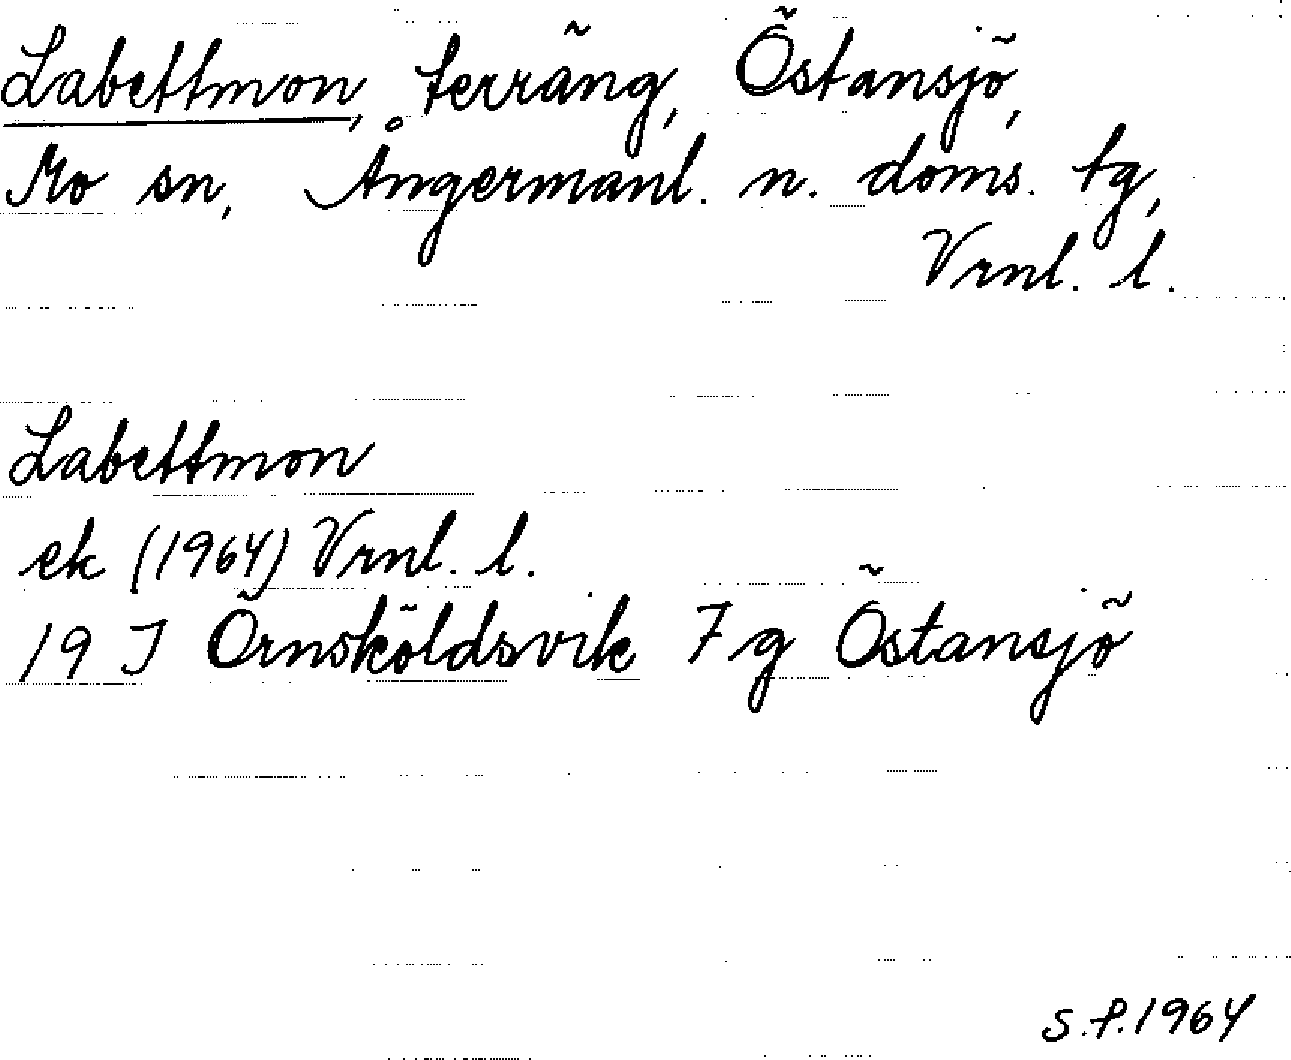 Labettmon, terräng, Östansjö,
Mo sn, Ångermanl. n. doms. tg,
Vrnl. l.
Labettmon
ek (1964) Vrnl. l.
19 J Örnsköldsvik 7 g Östansjö
s.f. 1964